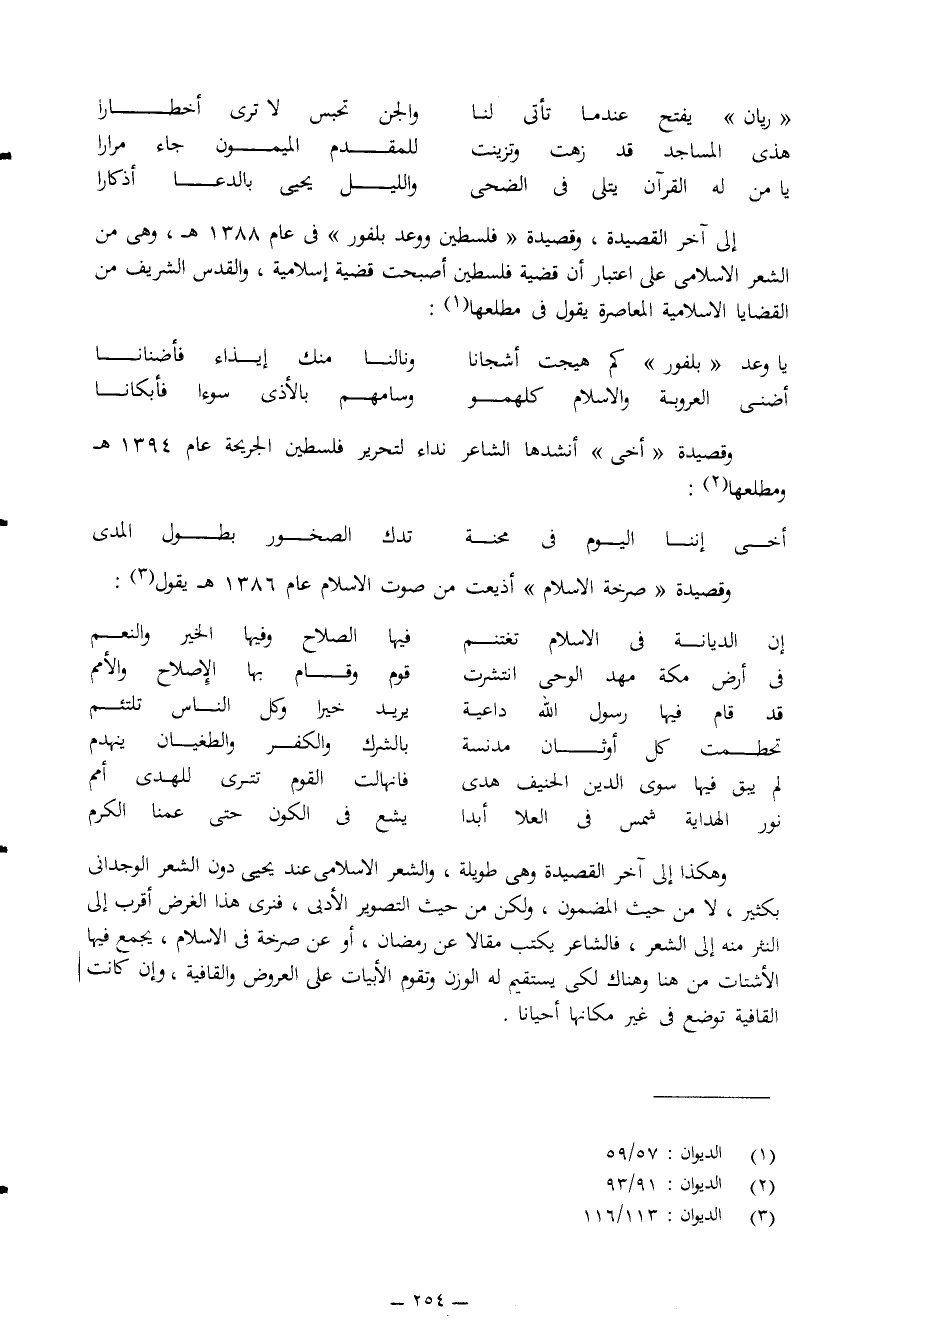 « ريان » يفتح عندما تأتى لنا والجن تحبس لا ترى أخطــارا
هذى المساجد قد زهت وتزينت للمقـدم الميمـون جاء مرارا
يا من له القرآن يتلى فى الضحى والليـل يحيى بالدعـا أذكارا
إلى آخر القصيدة ، وقصيدة « فلسطين ووعد بلفور » فى عام ١٣٨٨ هـ ، وهى من
الشعر الاسلامى على اعتبار أن قضية فلسطين أصبحت قضية إسلامية ، والقدس الشريف من
القضايا الاسلامية المعاصرة يقول فى مطلعها(١) :
يا وعد « بلفور » كم هيجت أشجانا ونالنـا منك إيـذاء فأضنانـا
أضنـى العروبة والاسلام كلهمـو وسامهـم بالأذى سوءا فأبكانـا
وقصيدة « أخى » أنشدها الشاعر نداء لتحرير فلسطين الجريحة عام ١٣٩٤ هـ
ومطلعها(٢) :
أخـى إننـا اليـوم فى محنـة تدك الصخـور بطـول المدى
وقصيدة « صرخة الاسلام » أذيعت من صوت الاسلام عام ١٣٨٦ هـ يقول(٣) :
إن الديانـة فى الاسلام تغتنـم فيها الصلاح وفيها الخير والنعـم
فى أرض مكة مهد الوحى انتشرت قوم وقــام بها الإصلاح والأمم
قد قام فيها رسول الله داعية يريـد خيرا وكل النـاس تلتئـم
تحطمـت كل أوثــان مدنسة بالشرك والكفـر والطغيـان ينهدم
لم يبق فيها سوى الدين الحنيف هدى فانهالت القوم تترى للهـدى أمم
نور الهداية شمس فى العلا أبدا يشع فى الكون حتى عمنا الكرم
وهكذا إلى آخر القصيدة وهى طويلة ، والشعر الاسلامى عند يحيى دون الشعر الوجدانى
بكثير ، لا من حيث المضمون ، ولكن من حيث التصوير الأدبى ، فنرى هذا الغرض أقرب إلى
النثر منه إلى الشعر ، فالشاعر يكتب مقالا عن رمضان ، أو عن صرخة فى الاسلام ، يجمع فيها
الأشتات من هنا وهناك لكى يستقيم له الوزن وتقوم الأبيات على العروض والقافية ، وإن كانت
القافية توضع فى غير مكانها أحيانا .
(١) الديوان : ٥٩/٥٧
(٢) الديوان : ٩٣/٩١
(٣) الديوان : ١١٦/١١٣
— ٢٥٤ —